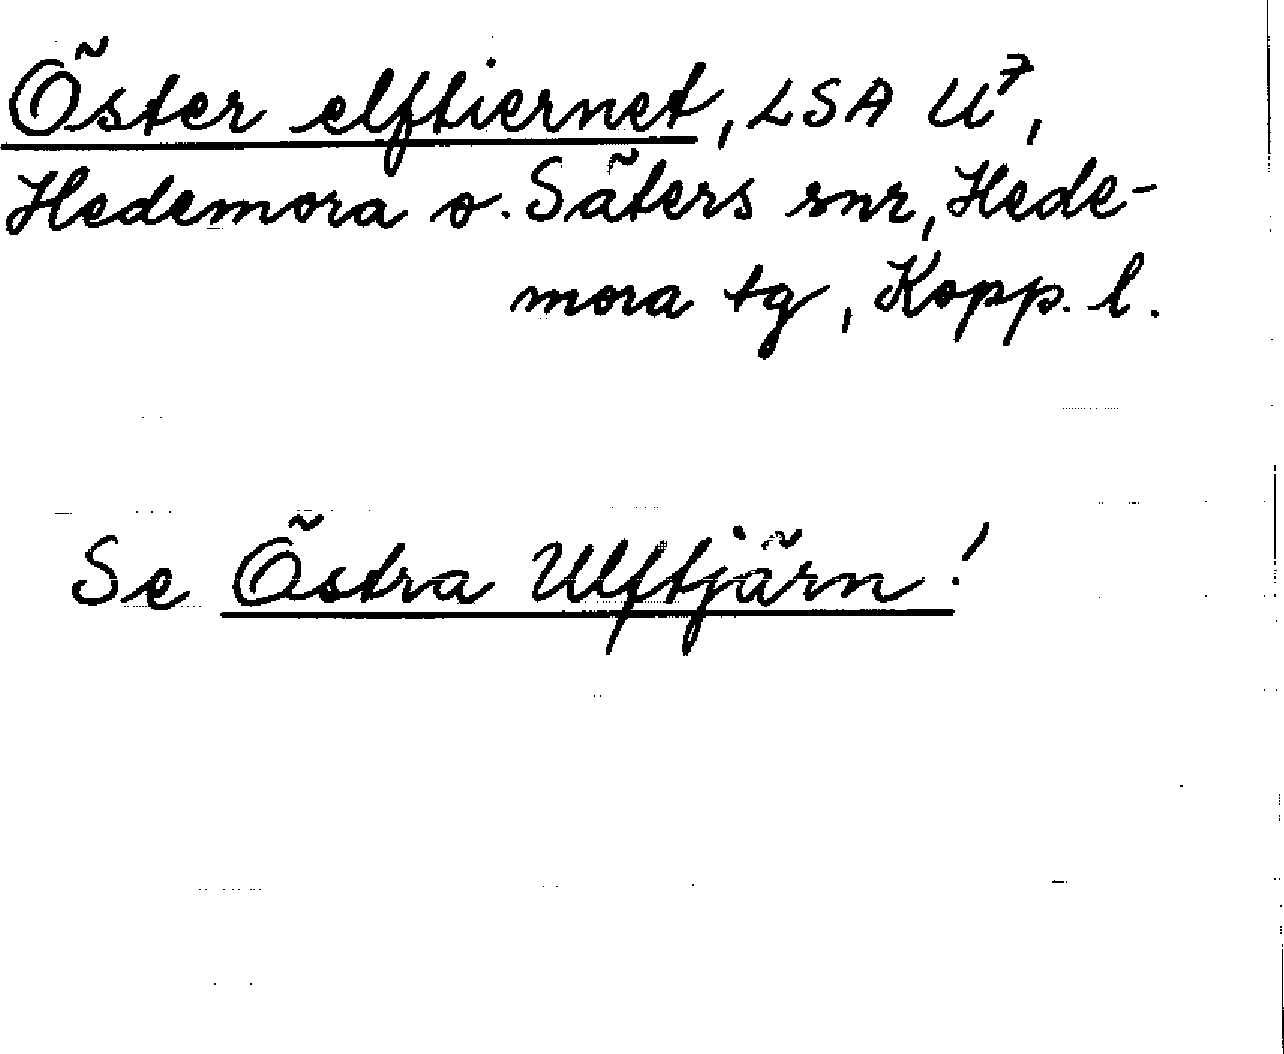 Öster elftiernet, LSA U⁷,
Hedemora o. Säters snr, Hede-
mora tg, Kopp. l.
Se Östra Ulftjärn!